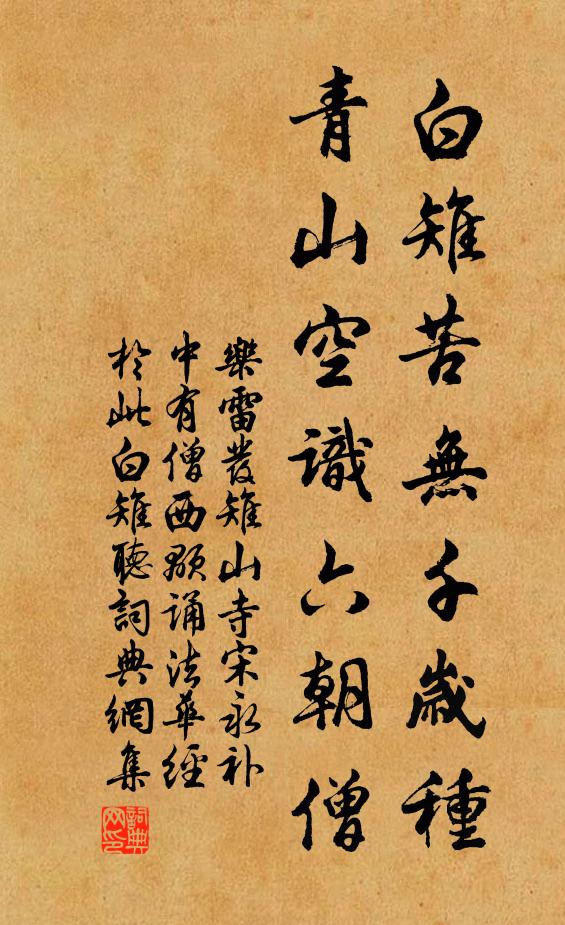 白雉苦無千歲種
青山空識六朝僧
樂雷發雉山寺宋永补
中有僧西顥誦法華經
於此白雉聽詞典網集
詞典網印